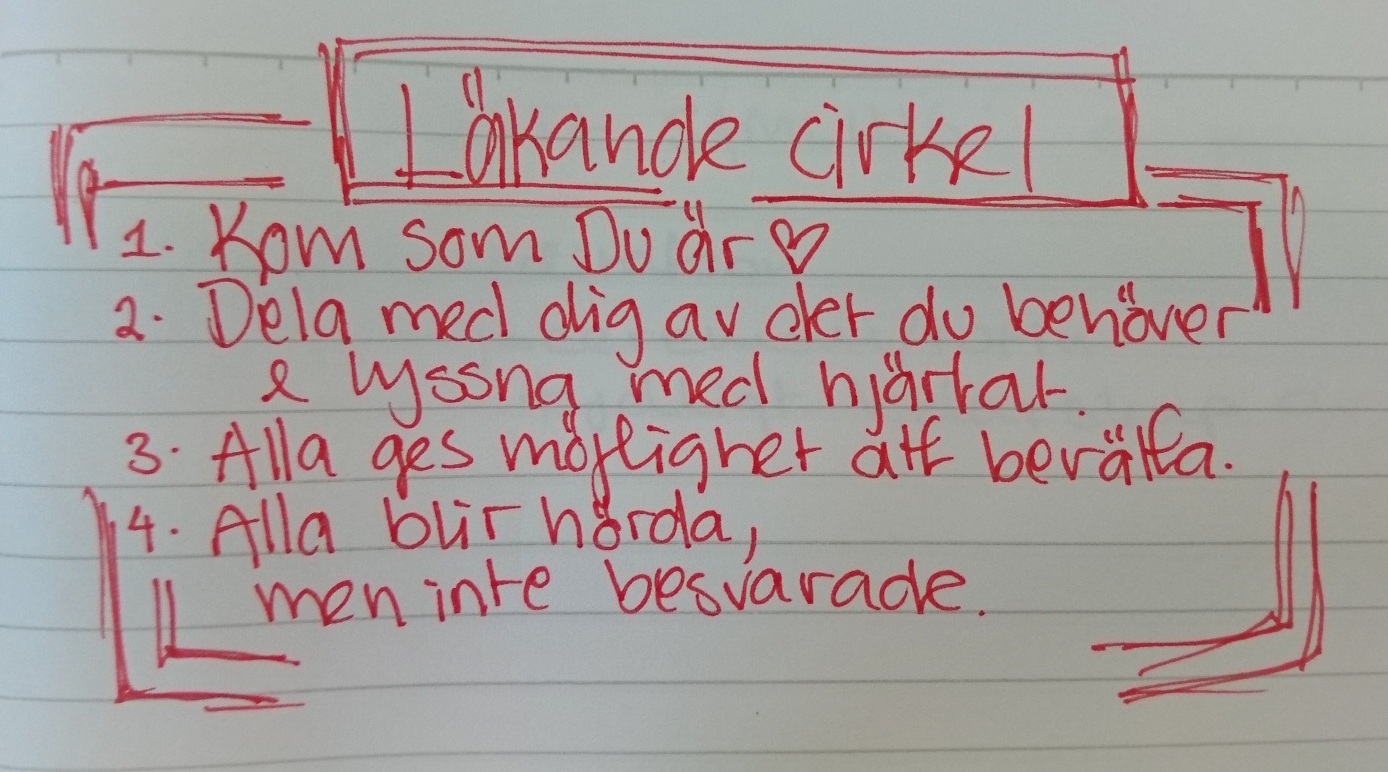 Läkande cirkel
1. Kom som Du är ♡
2. Dela med dig av det du behöver
& lyssna med hjärtat.
3. Alla ges möjlighet att berätta.
4. Alla blir hörda,
men inte besvarade.